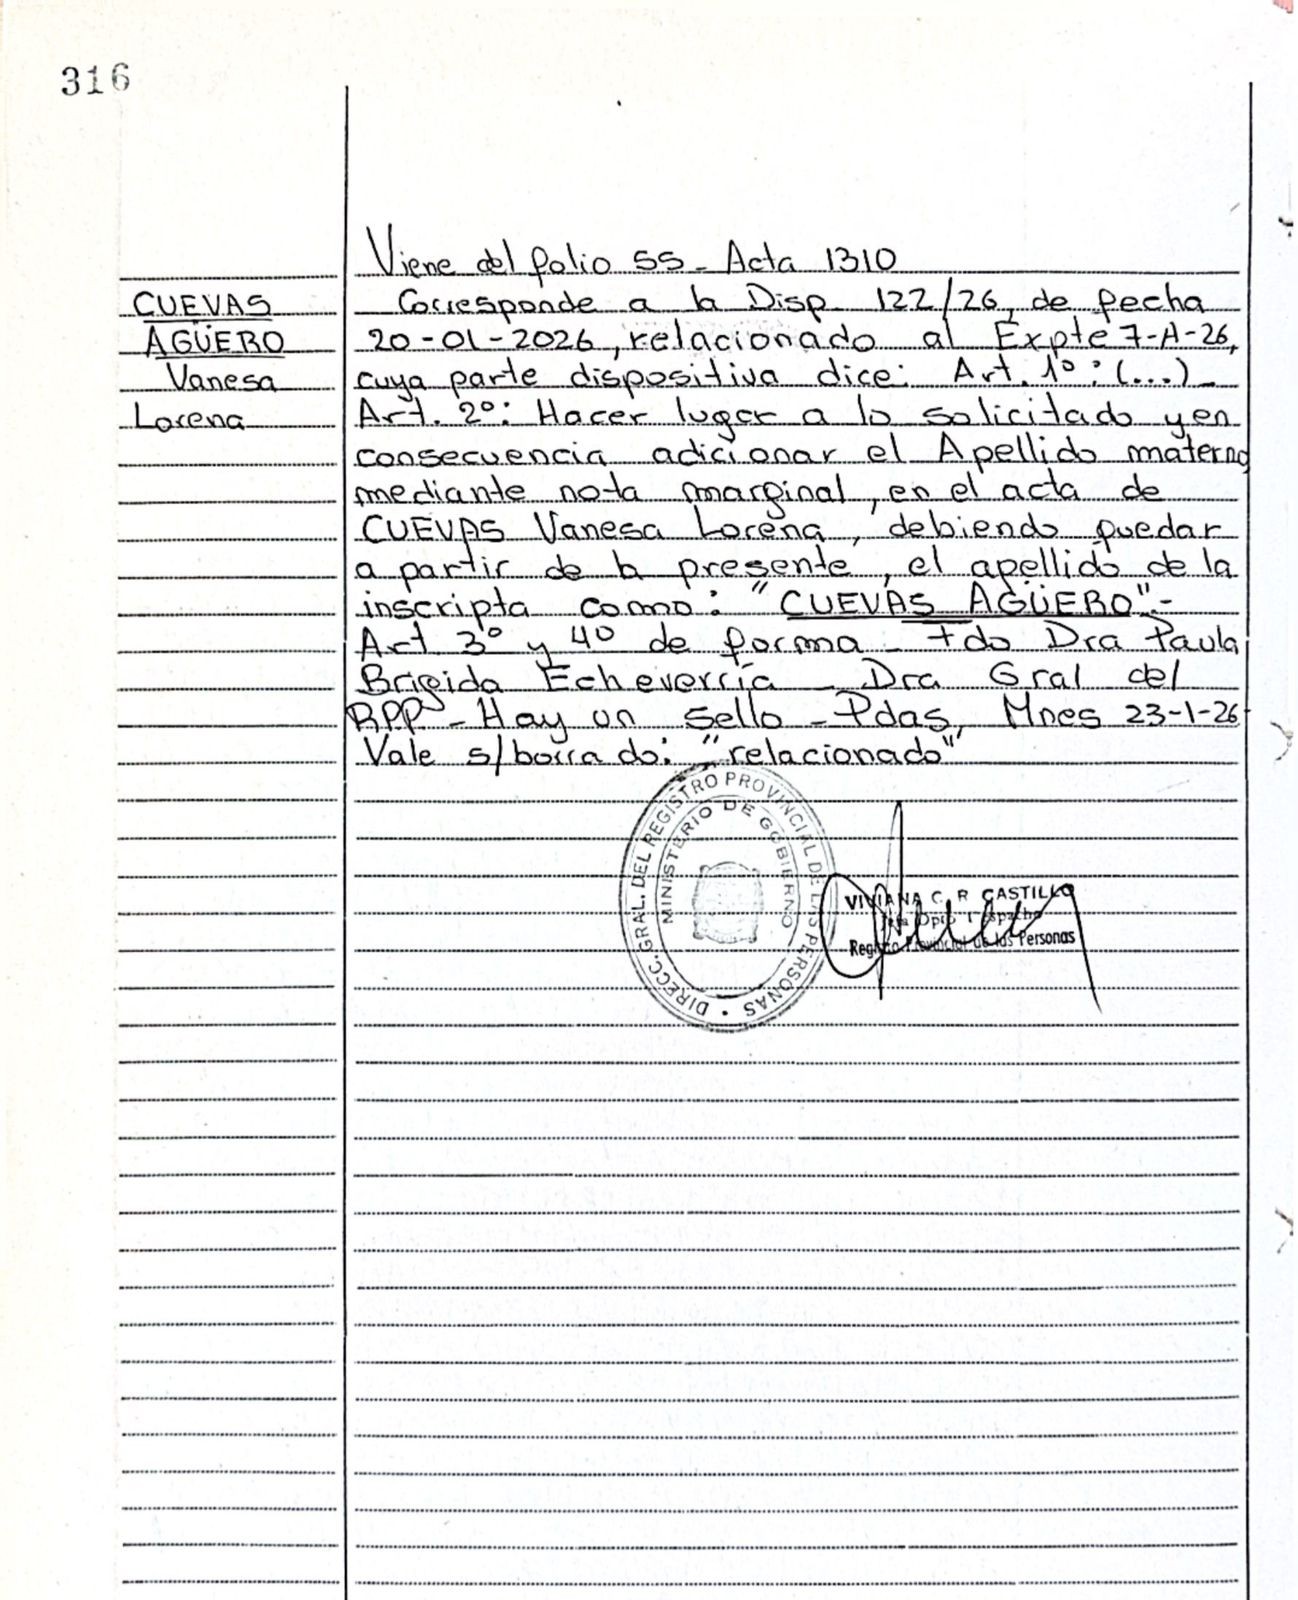 316
Viene del folio 55 - Acta 1310
CUEVAS
AGÜERO
Vanesa
Lorena
Corresponde a la Disp. 122/26, de fecha
20-01-2026, relacionado al Expte 7-A-26,
cuya parte dispositiva dice: Art. 1º: (...) -
Art. 2º: Hacer lugar a lo solicitado y en
consecuencia adicionar el Apellido materno
mediante nota marginal, en el acta de
CUEVAS Vanesa Lorena, debiendo quedar
a partir de la presente, el apellido de la
inscripta como: "CUEVAS AGÜERO"-
Art 3º y 4º de forma - Fdo Dra Paula
Brigida Echeverría - Dra Gral del
RPP - Hay un sello - Pdas, Mnes 23-1-26-
Vale s/borrado: "relacionado"
DIRECC. GRAL. DEL REGISTRO PROVINCIAL DE LAS PERSONAS •
MINISTERIO DE GOBIERNO
VIVIANA C. R. CASTILLO
Dpto
Registro Provincial de las Personas